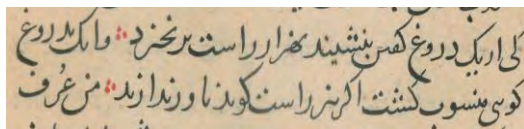 از یک دروغ کفتن بنشیند بهزار راست برنخیزد و انک بدروغ
کویی منسوب کشت اکر نیز راست کوید باور ندارند من عُرف